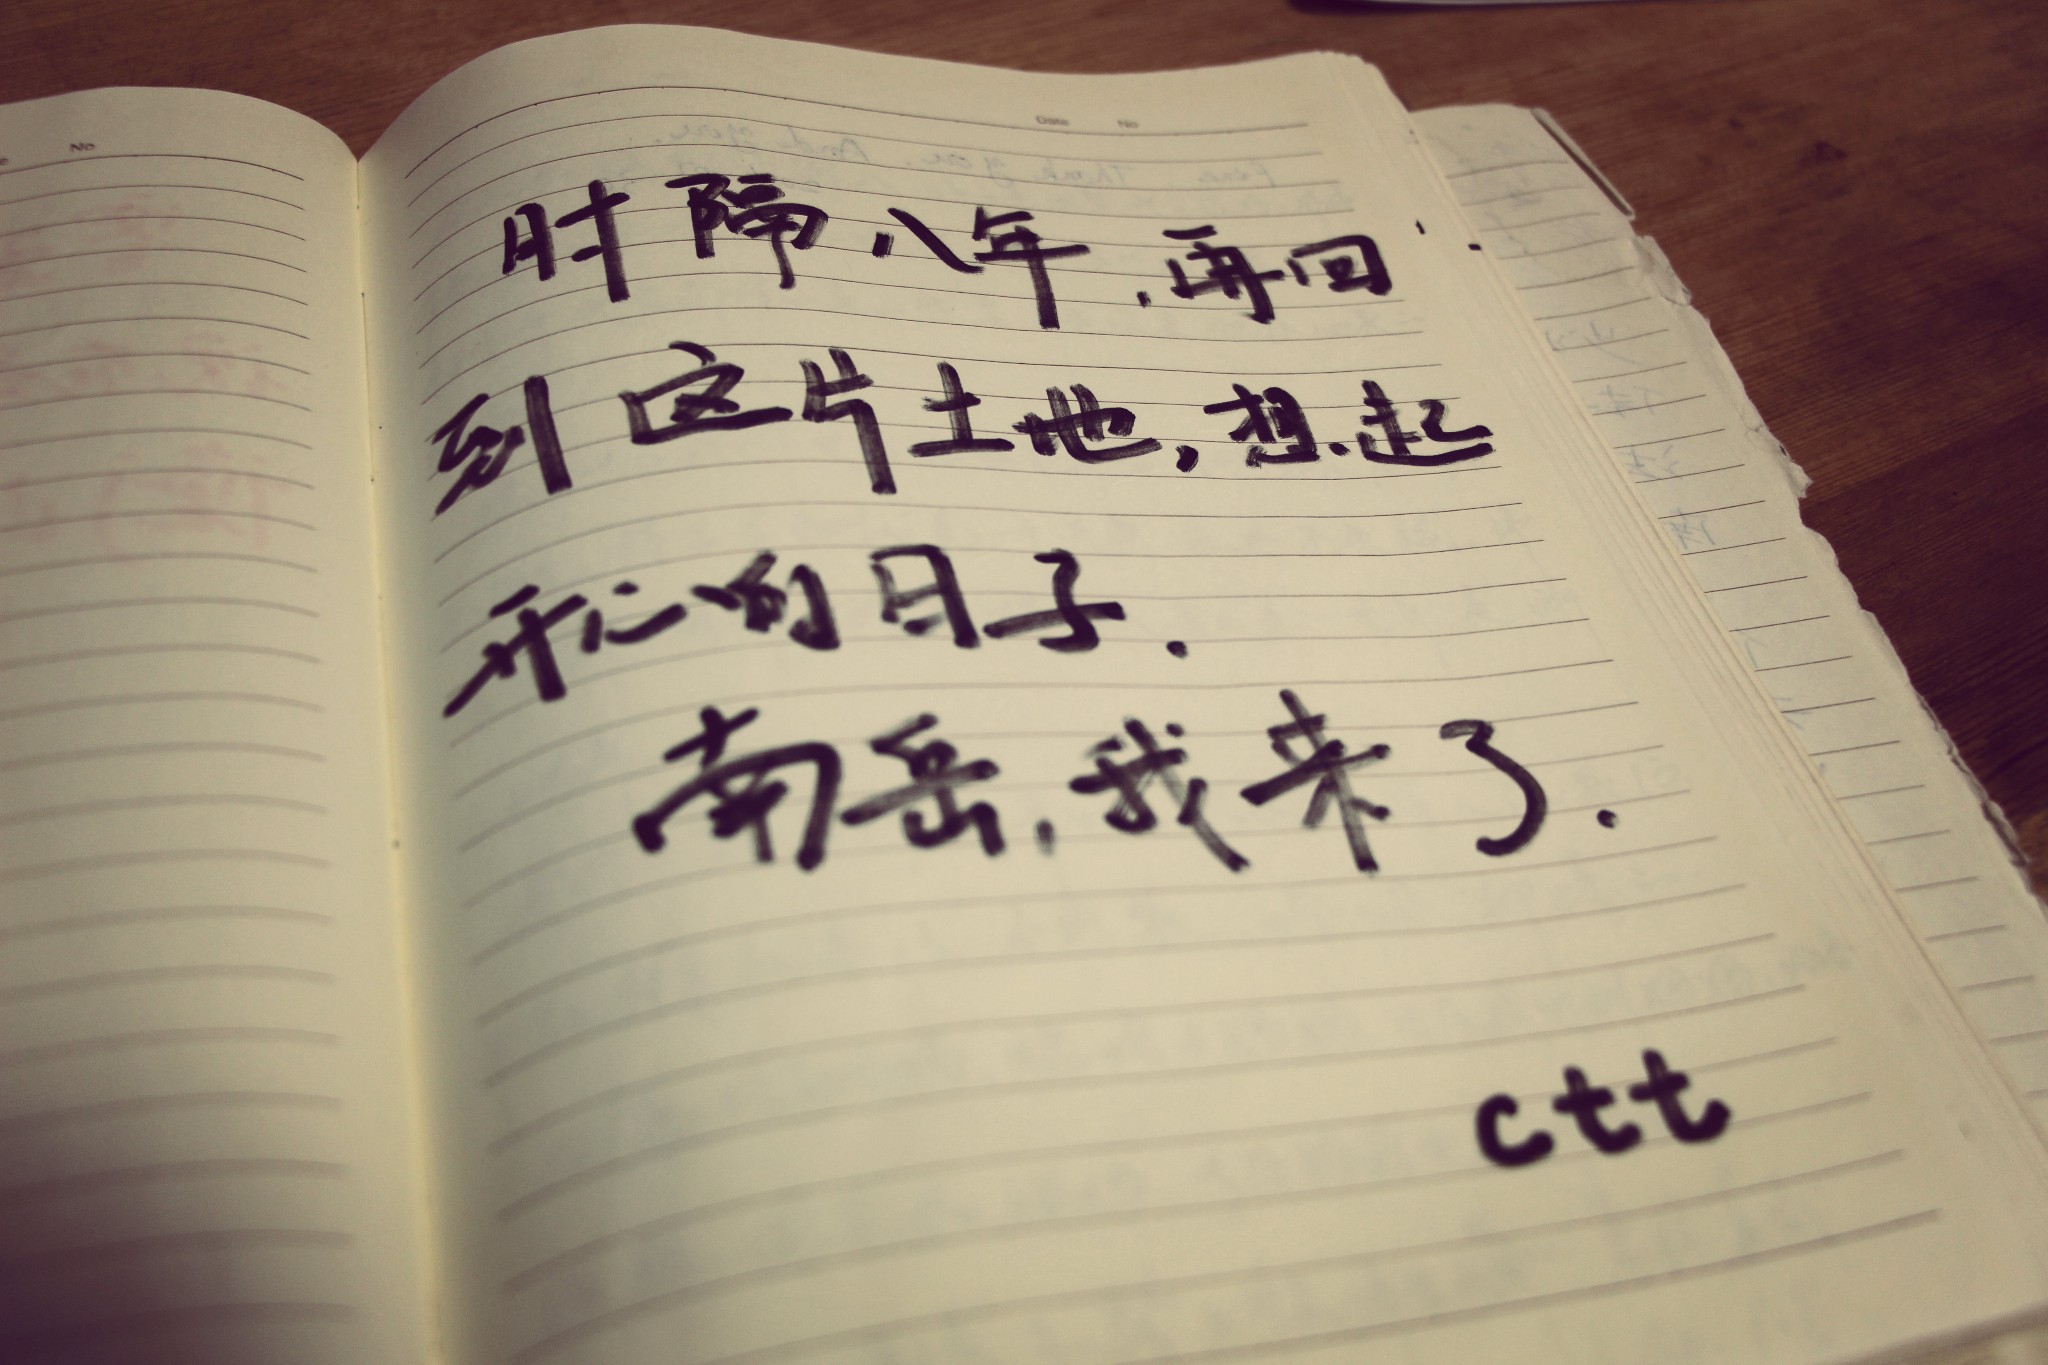 No
Date No
时隔八年,再回
到这片土地,想起
开心的日子.
南岳,我来了.
ctt